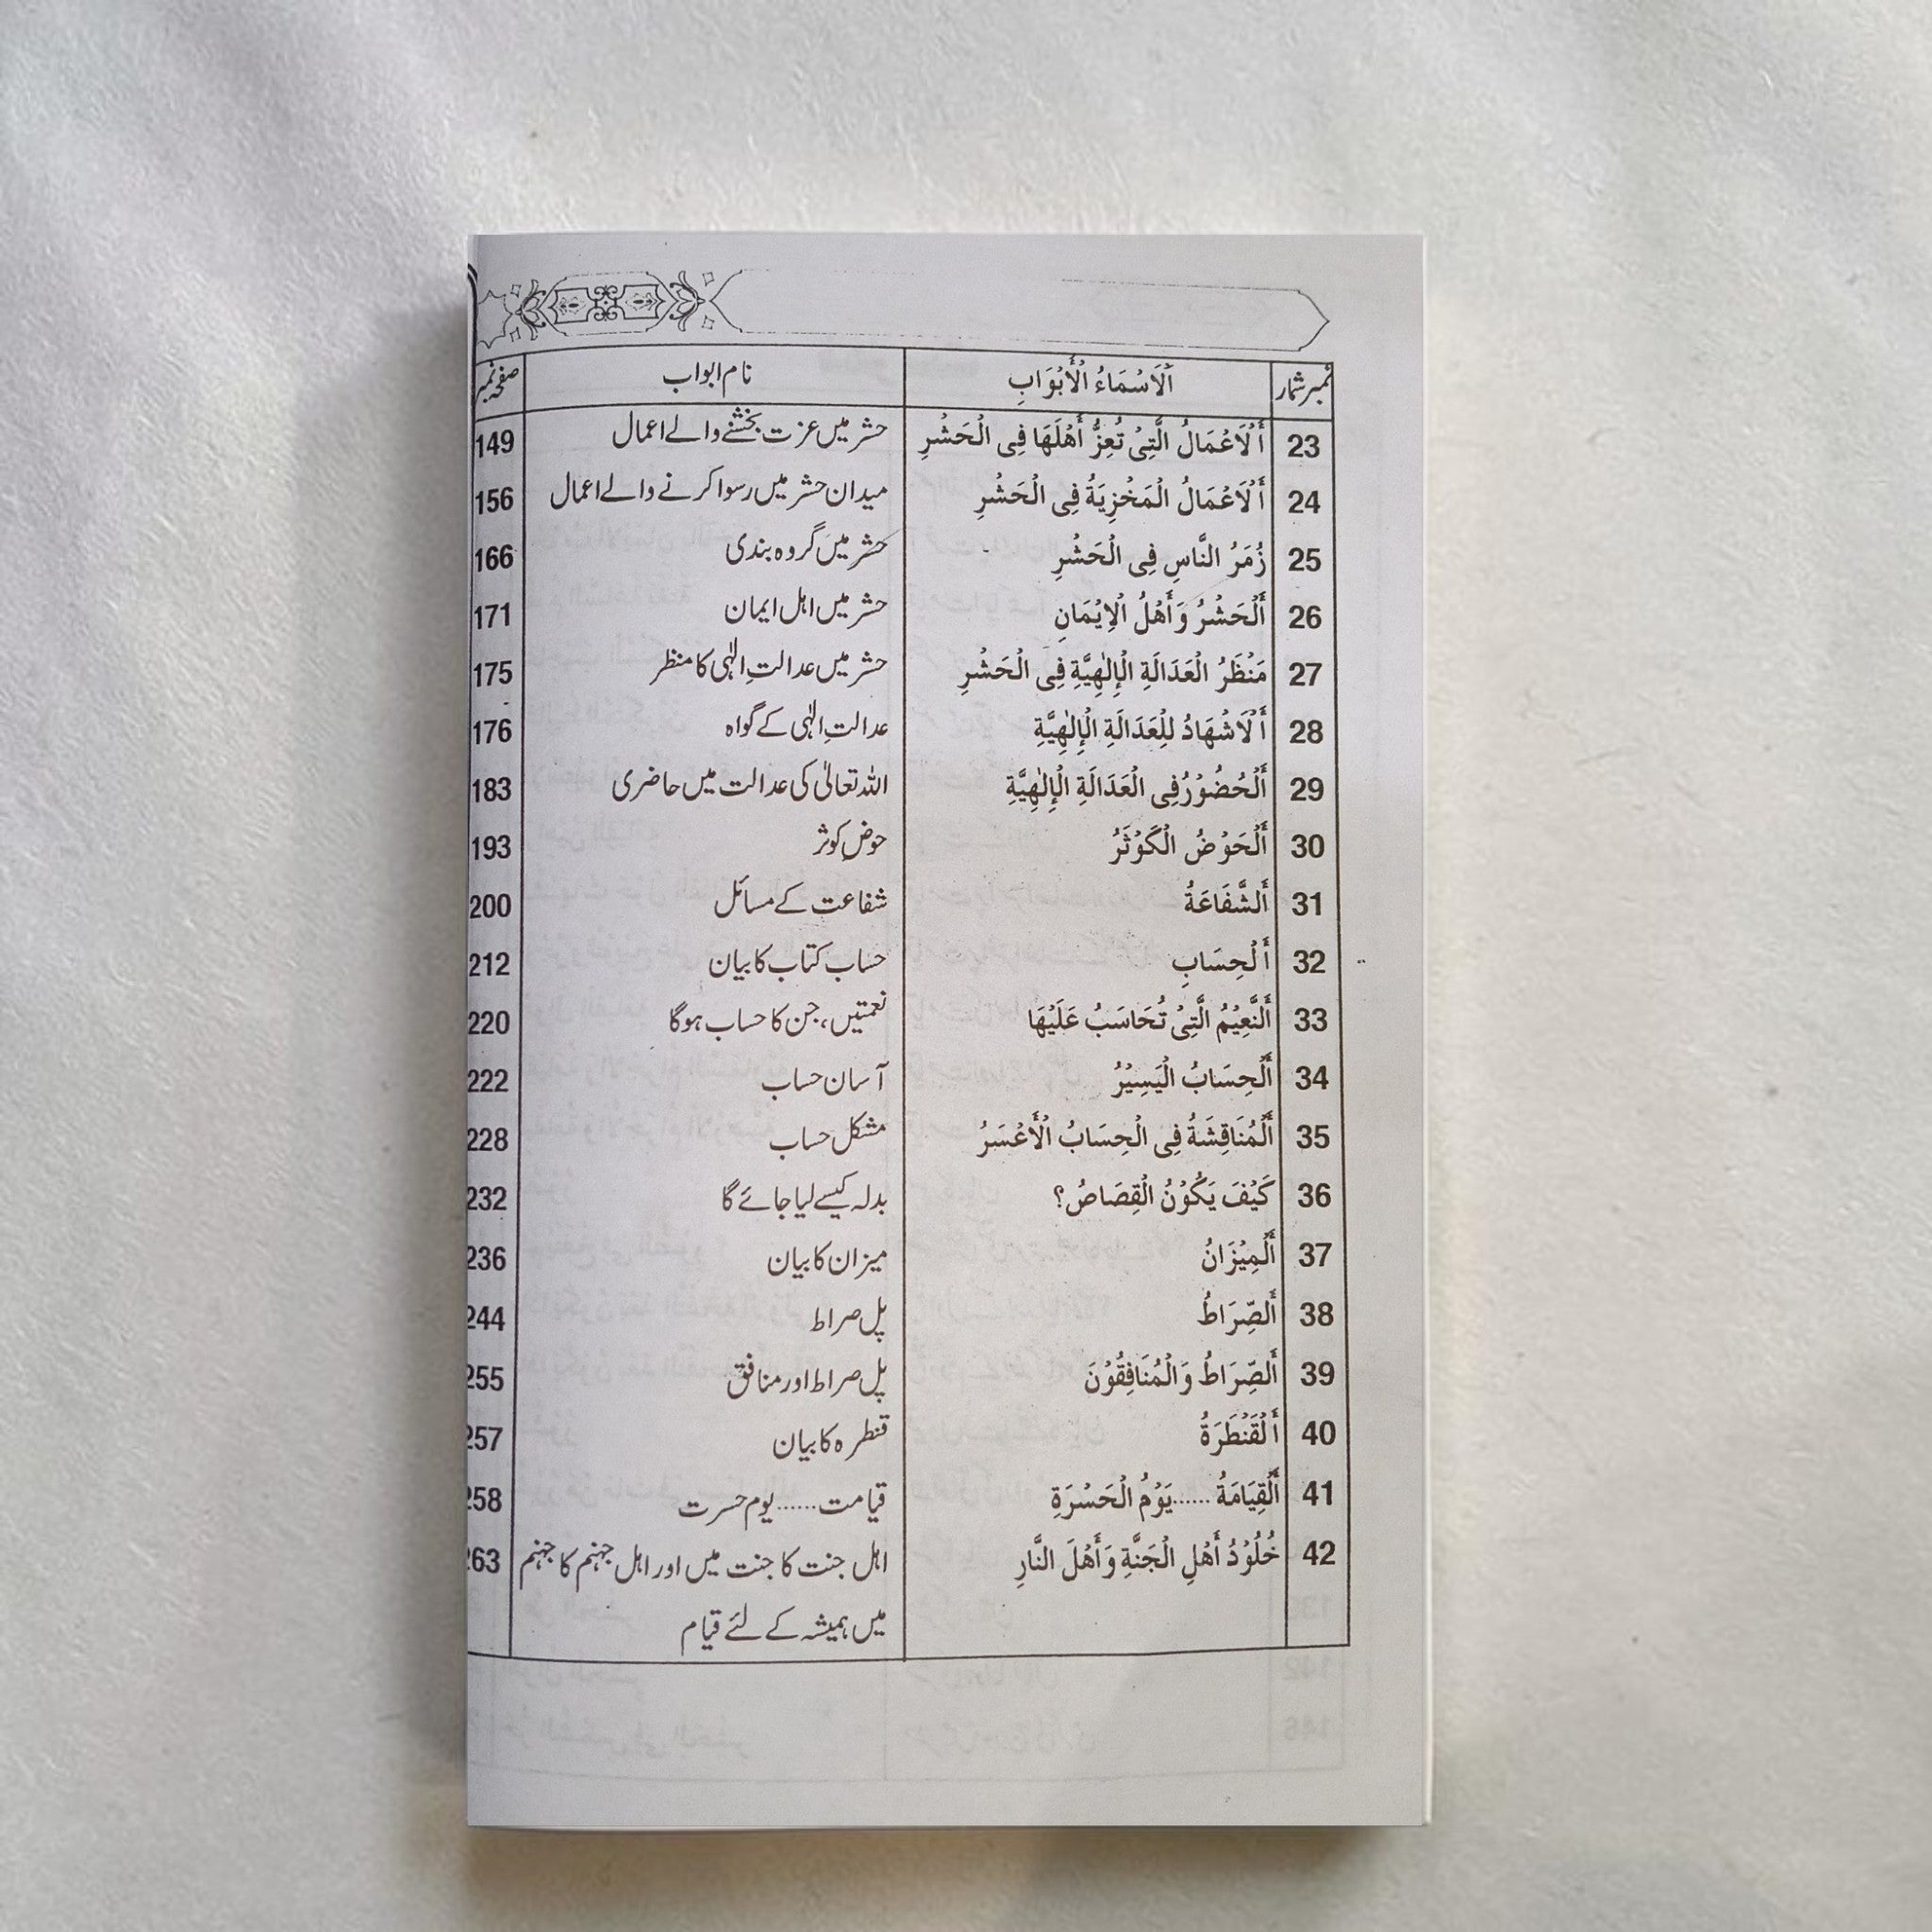 نمبر شمار اَلْاَسْمَاءُ الْأَبْوَابِ نام ابواب صفحہ نمبر
23 أَلْاَعْمَالُ الَّتِیْ تُعِزُّ أَهْلَهَا فِی الْحَشْرِ حشر میں عزت بخشنے والے اعمال 149
24 أَلْاَعْمَالُ الْمَخْزِيَةُ فِی الْحَشْرِ میدان حشر میں رسوا کرنے والے اعمال 156
25 زُمَرُ النَّاسِ فِی الْحَشْرِ حشر میں گروہ بندی 166
26 أَلْحَشْرُ وَأَهْلُ الْاِيْمَانِ حشر میں اہل ایمان 171
27 مَنْظَرُ الْعَدَالَةِ الْإِلٰهِيَّةِ فِی الْحَشْرِ حشر میں عدالتِ الٰہی کا منظر 175
28 أَلْاَشْهَادُ لِلْعَدَالَةِ الْإِلٰهِيَّةِ عدالتِ الٰہی کے گواہ 176
29 أَلْحُضُوْرُ فِی الْعَدَالَةِ الْإِلٰهِيَّةِ اللہ تعالیٰ کی عدالت میں حاضری 183
30 أَلْحَوْضُ الْكَوْثَرُ حوضِ کوثر 193
31 أَلشَّفَاعَةُ شفاعت کے مسائل 200
32 أَلْحِسَابِ حساب کتاب کا بیان 212
33 أَلنَّعِيْمُ الَّتِیْ تُحَاسَبُ عَلَيْهَا نعمتیں، جن کا حساب ہوگا 220
34 أَلْحِسَابُ الْيَسِيْرُ آسان حساب 222
35 أَلْمُنَاقِشَةُ فِی الْحِسَابُ الْأَعْسَرُ مشکل حساب 228
36 كَيْفَ يَكُوْنُ الْقِصَاصُ؟ بدلہ کیسے لیا جائے گا 232
37 أَلْمِيْزَانُ میزان کا بیان 236
38 أَلصِّرَاطُ پل صراط 244
39 أَلصِّرَاطُ وَالْمُنَافِقُوْنَ پل صراط اور منافق 255
40 أَلْقَنْطَرَةُ قنطرہ کا بیان 257
41 أَلْقِيَامَةُ ......يَوْمُ الْحَسْرَةِ قیامت......یوم حسرت 258
42 خُلُوْدُ أَهْلِ الْجَنَّةِ وَأَهْلَ النَّارِ اہل جنت کا جنت میں اور اہل جہنم کا جہنم 263
میں ہمیشہ کے لئے قیام